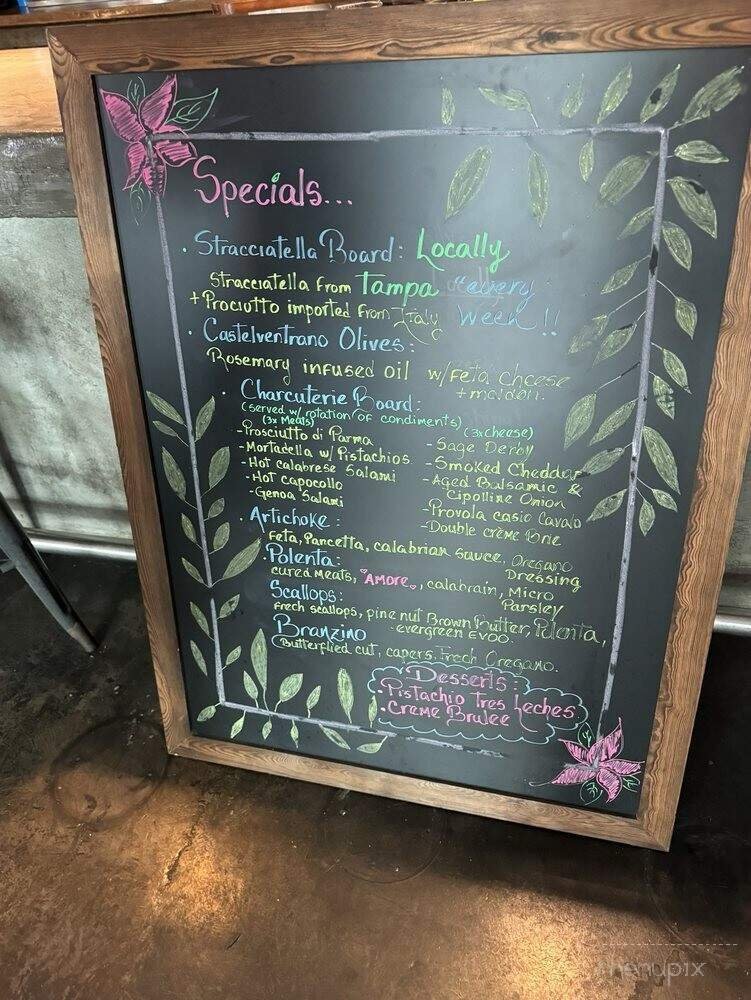 Specials...
· Stracciatella Board: Locally
Stracciatella from Tampa every
+ Prociutto imported from Italy Week!!
· Castelventrano Olives:
Rosemary infused oil w/ Feta Cheese
+ maldon.
· Charcuterie Board:
(served w/ rotation of condiments)
(3x Meats) (3xcheese)
-Prosciutto di Parma
-Mortadella w/ Pistachios
-Hot calabrese Salami
-Hot capocollo
-Genoa Salami
-Sage Derby
-Smoked Cheddar
-Aged Balsamic &
Cipolline Onion
-Provola casio Cavalo
-Double crème Brie
· Artichoke:
Feta, Pancetta, calabrian sauce, Oregano
Dressing
· Polenta:
cured meats, "AMORE", calabrain, Micro
Parsley
Scallops:
Fresh scallops, pine nut Brown Butter, Polenta,
-evergreen EVOO.
Branzino
Butterflied cut, capers. Fresh Oregano.
Desserts:
·Pistachio Tres Leches
·Creme Brulee
menupix